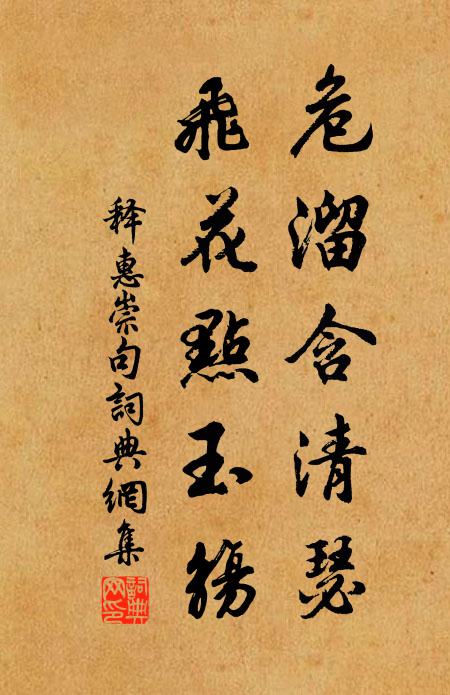 危溜含清瑟
飛花點玉觴
释惠崇句詞典網集
詞典網印